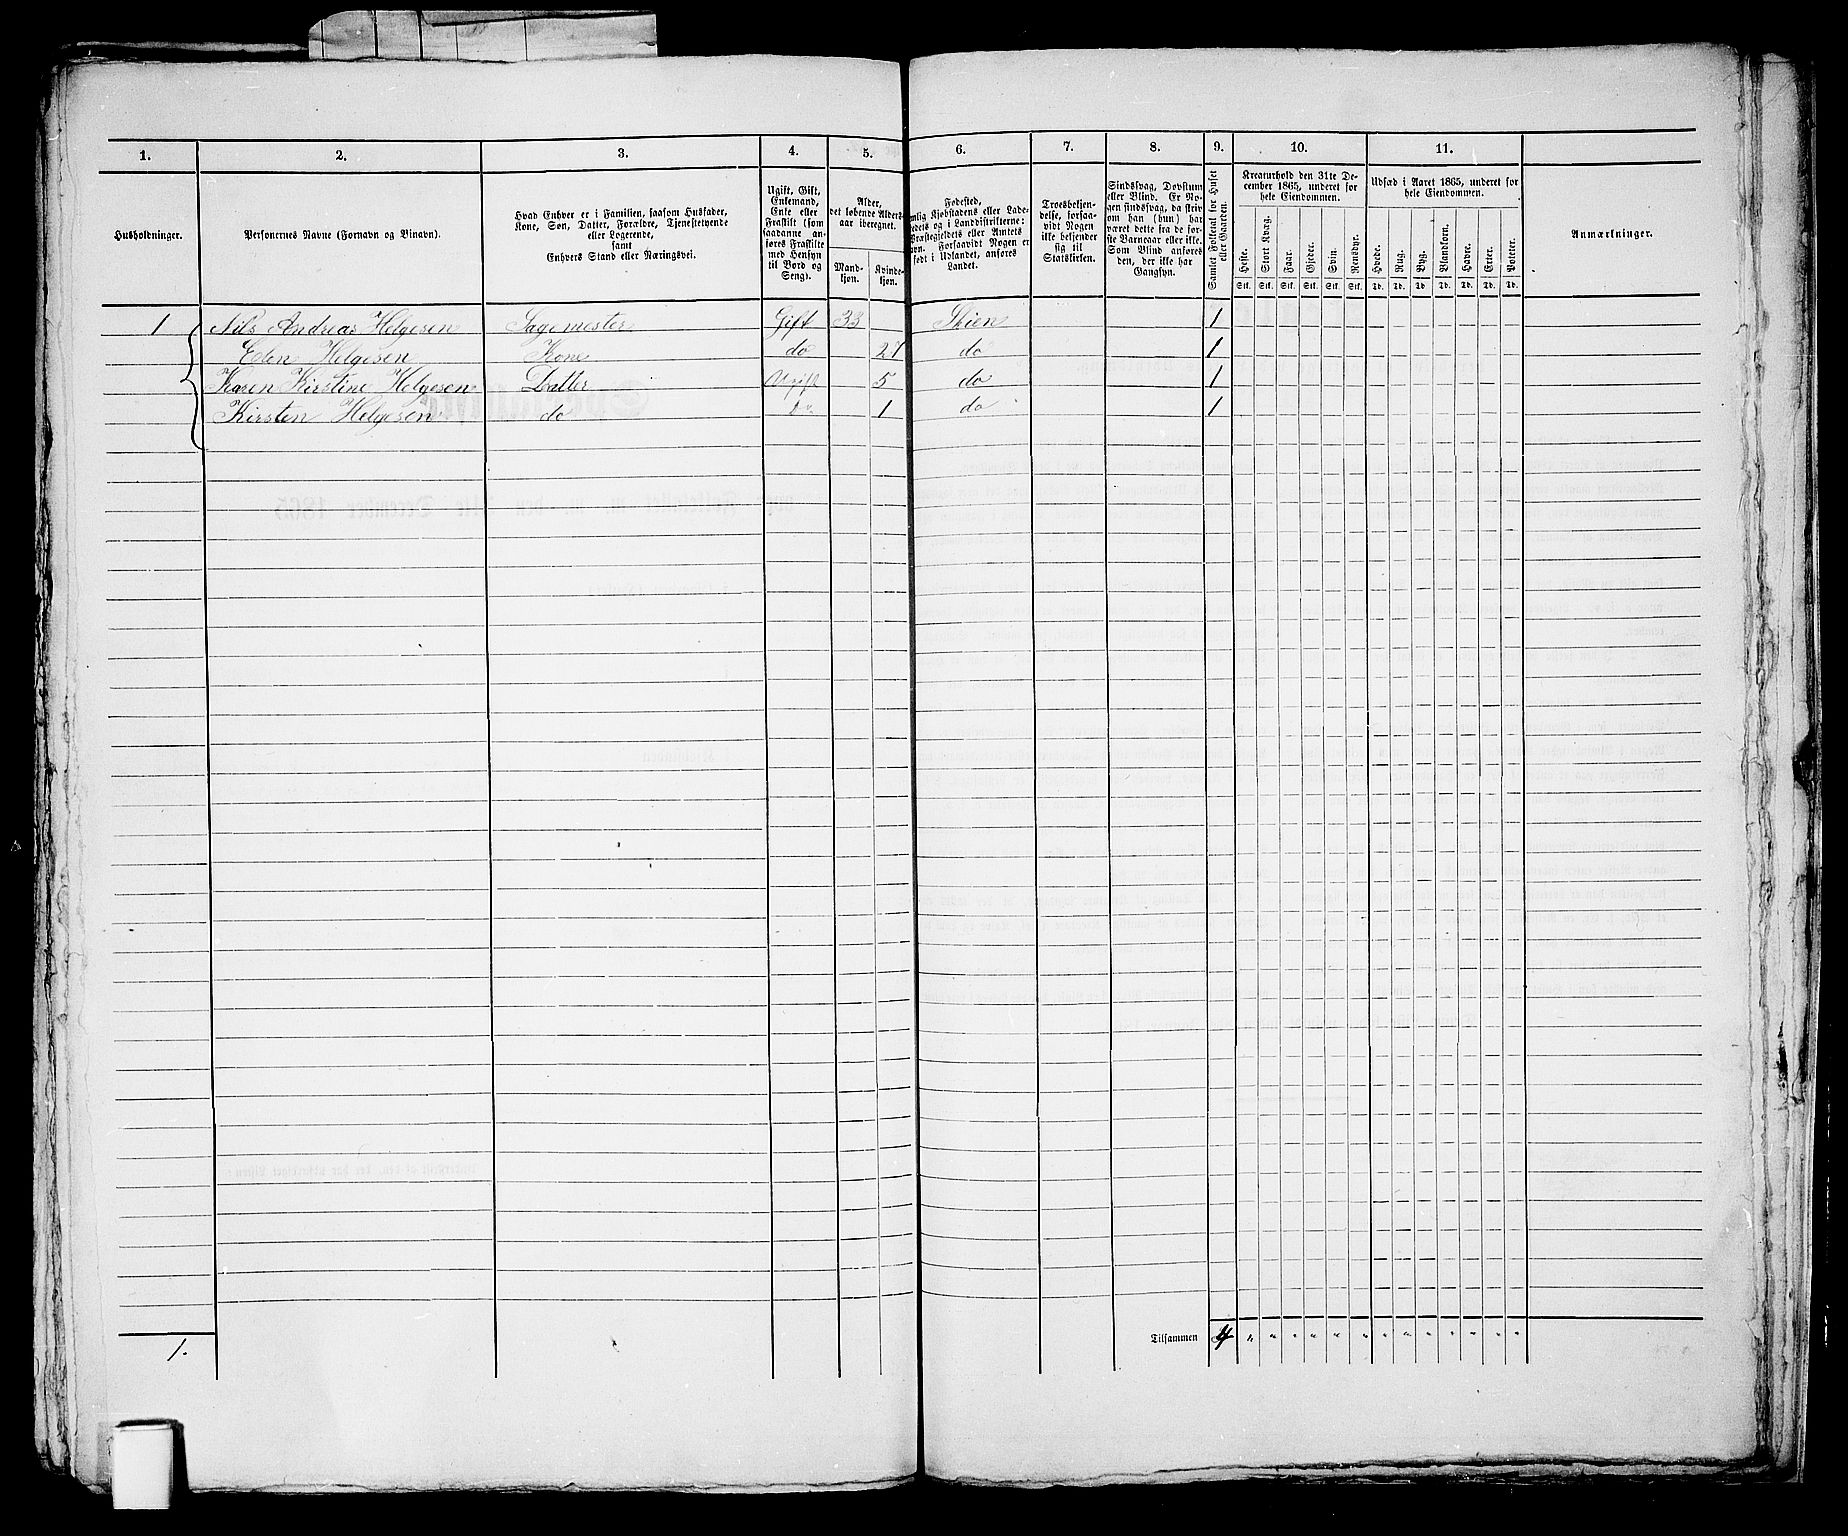 1. 2. 3. 4. 5. 6. 7. 8. 9. 10. 11.
Husholdninger.
Personernes Navne (Fornavn og Binavn).
Hvad Enhver er i Familien, saasom Husfader,
Kone, Søn, Datter, Forældre, Tjenestetyende
eller Logerende,
samt
Enhvers Stand eller Næringsvei.
Ugift, Gift,
Enkemand,
Enke eller
Fraskilt (som
saadanne an-
føres Fraskilte
med Hensyn
til Bord og
Seng).
Alder,
det løbende Alders-
aar iberegnet.
Mand-
kjøn.
Kvinde-
kjøn.
Fødested,
Kjøbstadens eller Lade-
og i Landdistrikterne:
eller Amtets
Navn. Forsaavidt Nogen er
født i Udlandet, anføres
Landet.
Troesbekjen-
delse, forsaa-
vidt Nogen
ikke bekjender
sig til
Statskirken.
Sindssvag, Døvstum
eller Blind. Er No-
gen sindssvag, da skriv
om han (hun) har
været dette fra de før-
ste Barneaar eller ikke.
Som Blind anføres
den, der ikke har
Gangsyn.
Samlet Folketal for Huset
eller Gaarden.
Kreaturhold den 31te De-
cember 1865, underet for
hele Eiendommen.
Heste. Stort Kvæg. Faar. Gjeder. Svin. Rensdyr.
Stk. Stk. Stk. Stk. Stk. Stk.
Udsæd i Aaret 1865, underet for
hele Eiendommen.
Hvede. Rug. Byg. Blandkorn. Havre. Erter. Poteter.
Td. Td. Td. Td. Td. Td. Td.
Anmærkninger.
1 Nils Andreas Helgesen Sagemester Gift 33 Skien 1
Elen Helgesen Kone do 27 do 1
Karen Kirstine Helgesen Datter Ugift 5 do 1
Kirsten Helgesen do do 1 do 1
Tilsammen 4 " " " " " " " " " " " " "
1.